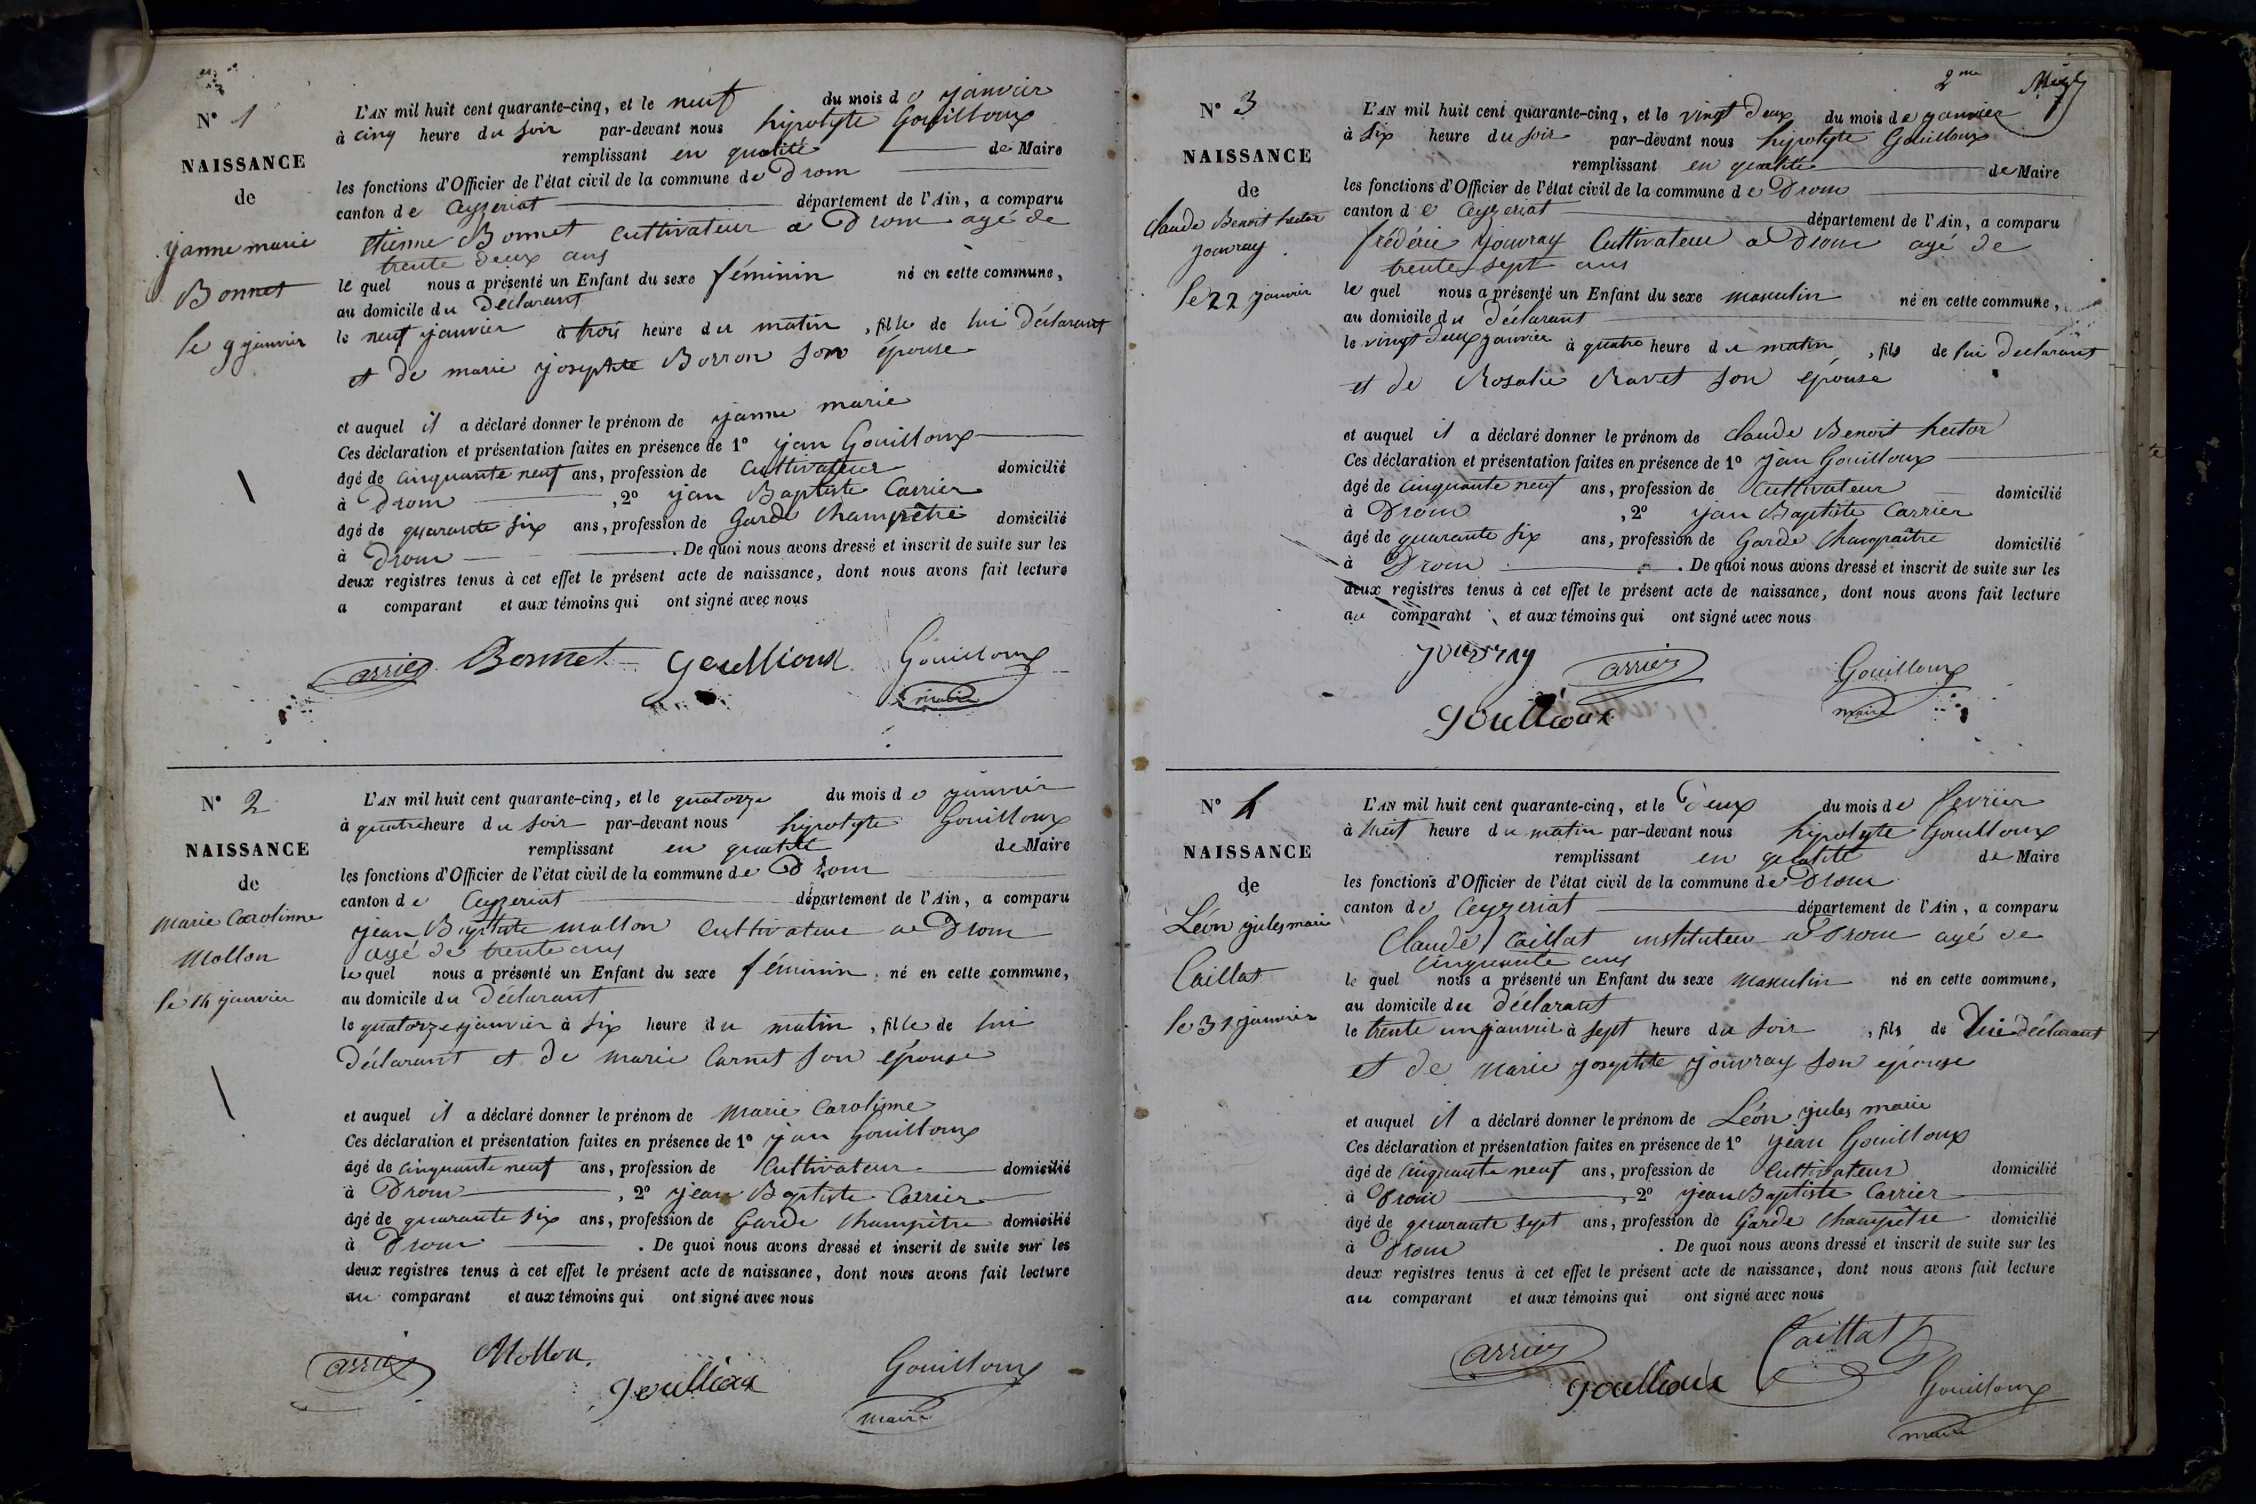 N° 1
NAISSANCE
de
janne marie
Bonnet
le 9 janvier
L'AN mil huit cent quarante-cinq, et le neuf du mois de janvier
à cinq heure du soir par-devant nous hipolyte Gouilloux
remplissant en qualité de Maire
les fonctions d'Officier de l'état civil de la commune de Drom
canton de Ceyzeriat département de l'Ain, a comparu
Etienne Bonnet cultivateur a Drom agé de
trente deux ans
le quel nous a présenté un Enfant du sexe féminin né en cette commune,
au domicile du Déclarant
le neuf janvier à trois heure du matin, fille de lui Déclarant
et de marie josephte Borron son épouse
et auquel il a déclaré donner le prénom de janne marie
Ces déclaration et présentation faites en présence de 1° jan Gouilloux
âgé de cinquante neuf ans, profession de Cultivateur domicilié
à Drom, 2° jan Baptiste Carrier
âgé de quarante six ans, profession de Garde Champêtre domicilié
à Drom. De quoi nous avons dressé et inscrit de suite sur les
deux registres tenus à cet effet le présent acte de naissance, dont nous avons fait lecture
a comparant et aux témoins qui ont signé avec nous
Carrier Bonnet Goullioux Gouilloux
maire
N° 2
NAISSANCE
de
Marie Carolinne
Mollon
le 14 janvier
L'AN mil huit cent quarante-cinq, et le quatorze du mois de janvier
à quatre heure du soir par-devant nous hipolyte Gouilloux
remplissant en qualité de Maire
les fonctions d'Officier de l'état civil de la commune de Drom
canton de Ceyzeriat département de l'Ain, a comparu
jean Baptiste mollon cultivateur a Drom
agé de trente ans
le quel nous a présenté un Enfant du sexe féminin né en cette commune,
au domicile du Déclarant
le quatorze janvier à six heure du matin, fille de lui
déclarant et de marie Carnet son épouse
et auquel il a déclaré donner le prénom de Marie Carolinne
Ces déclaration et présentation faites en présence de 1° jan Gouilloux
âgé de cinquante neuf ans, profession de Cultivateur domicilié
à Drom, 2° jean Baptiste Carrier
âgé de quarante six ans, profession de Garde Champêtre domicilié
à Drom. De quoi nous avons dressé et inscrit de suite sur les
deux registres tenus à cet effet le présent acte de naissance, dont nous avons fait lecture
au comparant et aux témoins qui ont signé avec nous
Carrier Mollon Goullioux Gouilloux
maire
2me
N° 3
NAISSANCE
de
Claude Benoit hector
jouvray
le 22 janvier
L'AN mil huit cent quarante-cinq, et le vingt deux du mois de janvier
à six heure du soir par-devant nous hipolyte Gouilloux
remplissant en qualité de Maire
les fonctions d'Officier de l'état civil de la commune de Drom
canton de Ceyzeriat département de l'Ain, a comparu
frédéric jouvray Cultivateur a Drom agé de
trente sept ans
le quel nous a présenté un Enfant du sexe masculin né en cette commune,
au domicile du déclarant
le vingt deux janvier à quatre heure du matin, fils de lui declarant
et de Rosalie Ravet son épouse
et auquel il a déclaré donner le prénom de Claude Benoit hector
Ces déclaration et présentation faites en présence de 1° jan Gouilloux
âgé de cinquante neuf ans, profession de Cultivateur domicilié
à Drom, 2° jan Baptiste Carrier
âgé de quarante six ans, profession de Garde Champaître domicilié
à Drom. De quoi nous avons dressé et inscrit de suite sur les
deux registres tenus à cet effet le présent acte de naissance, dont nous avons fait lecture
au comparant et aux témoins qui ont signé avec nous
jouvray Carrier Gouilloux
Goullioux maire
N° 4
NAISSANCE
de
Léon jules marie
Caillat
le 31 janvier
L'AN mil huit cent quarante-cinq, et le Deux du mois de fevrier
à huit heure du matin par-devant nous hipolyte Gouilloux
remplissant en qualité de Maire
les fonctions d'Officier de l'état civil de la commune de Drom
canton de Ceyzeriat département de l'Ain, a comparu
Claude Caillat instituteur a Drom agé de
cinquante ans
le quel nous a présenté un Enfant du sexe masculin né en cette commune,
au domicile du déclarant
le trente un janvier à sept heure du soir, fils de lui déclarant
et de marie josephte jouvray son épouse
et auquel il a déclaré donner le prénom de Léon jules marie
Ces déclaration et présentation faites en présence de 1° jean Gouilloux
âgé de cinquante neuf ans, profession de Cultivateur domicilié
à Drom, 2° jean Baptiste Carrier
âgé de quarante sept ans, profession de Garde Champêtre domicilié
à Drom. De quoi nous avons dressé et inscrit de suite sur les
deux registres tenus à cet effet le présent acte de naissance, dont nous avons fait lecture
au comparant et aux témoins qui ont signé avec nous
Carrier Caillat
Goullioux Gouilloux
maire